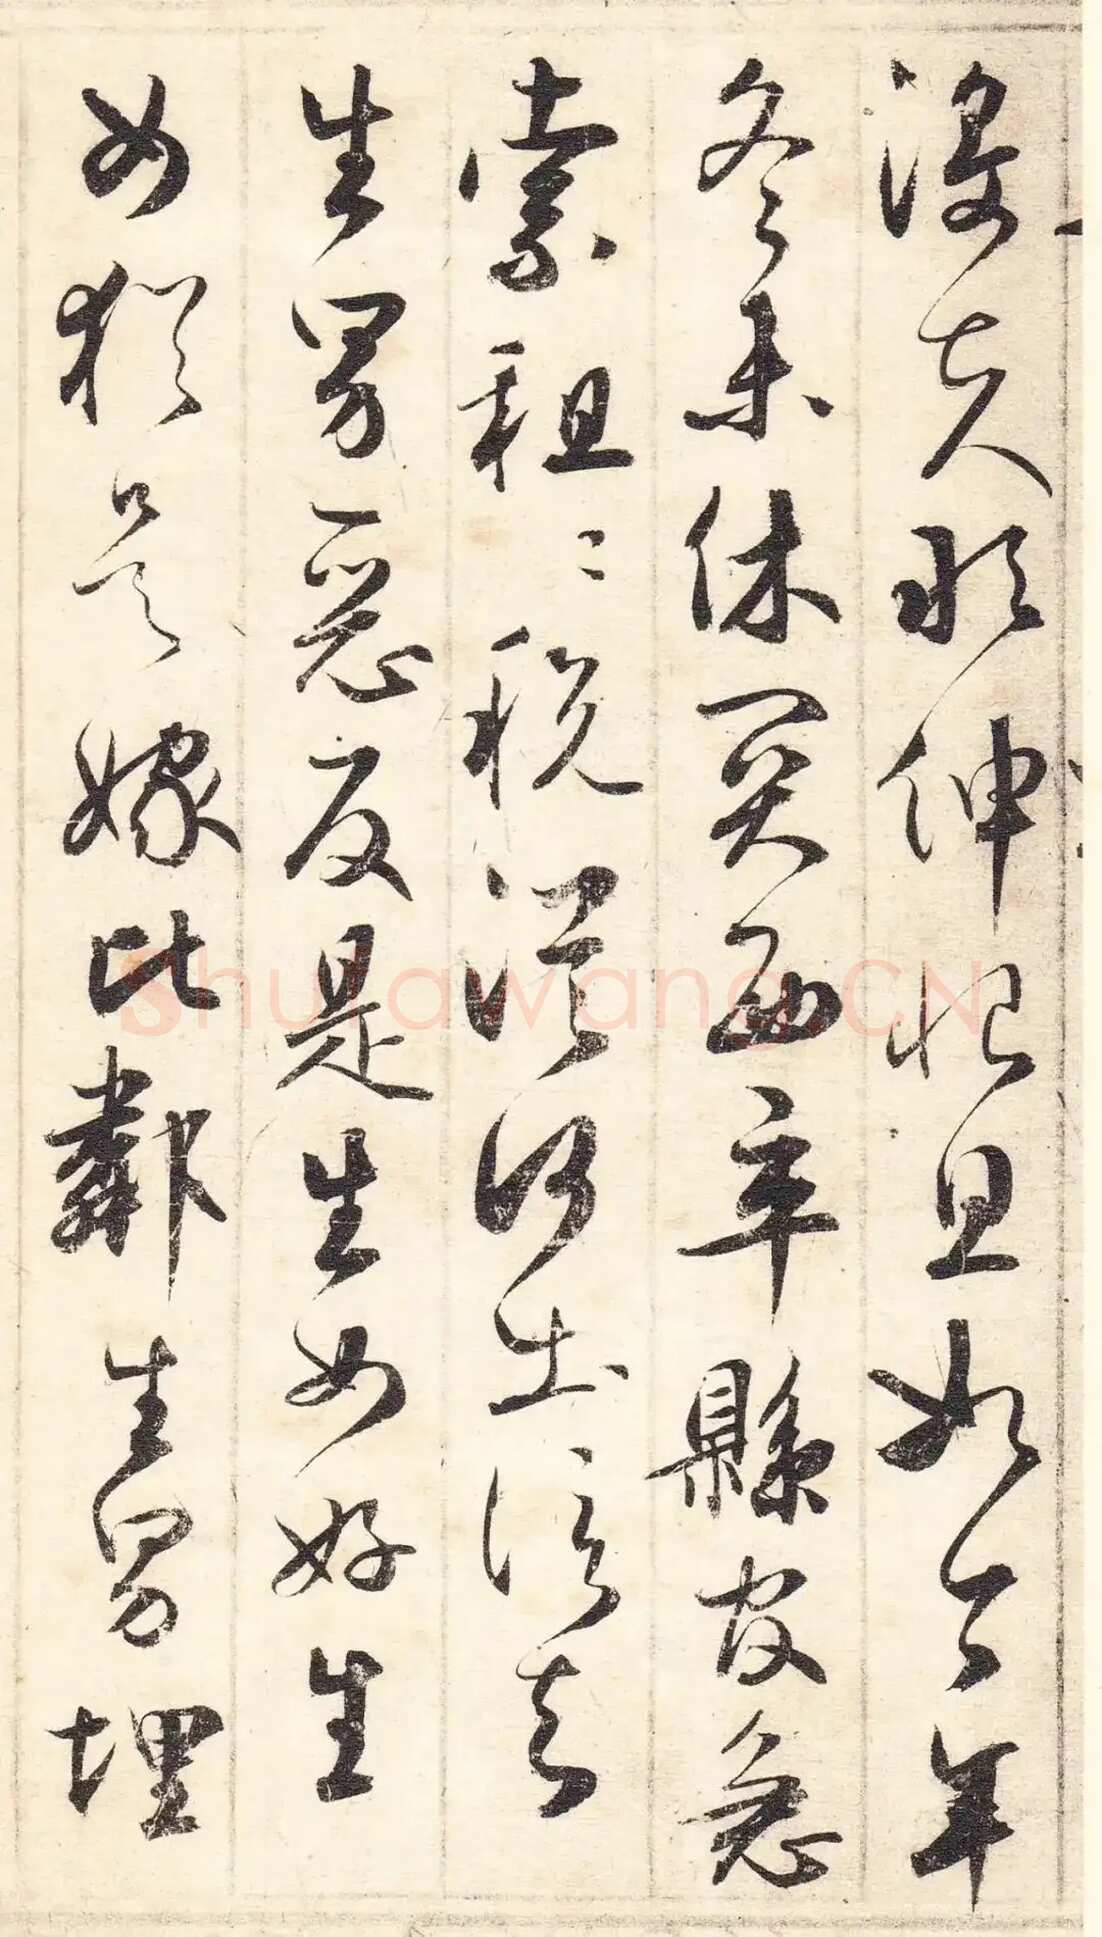 役夫敢伸恨且如今年
冬未休關西卒縣官急
索租〻税從何出信知
生男惡反是生女好生
女猶是嫁比鄰生男埋
Shufawang.CN